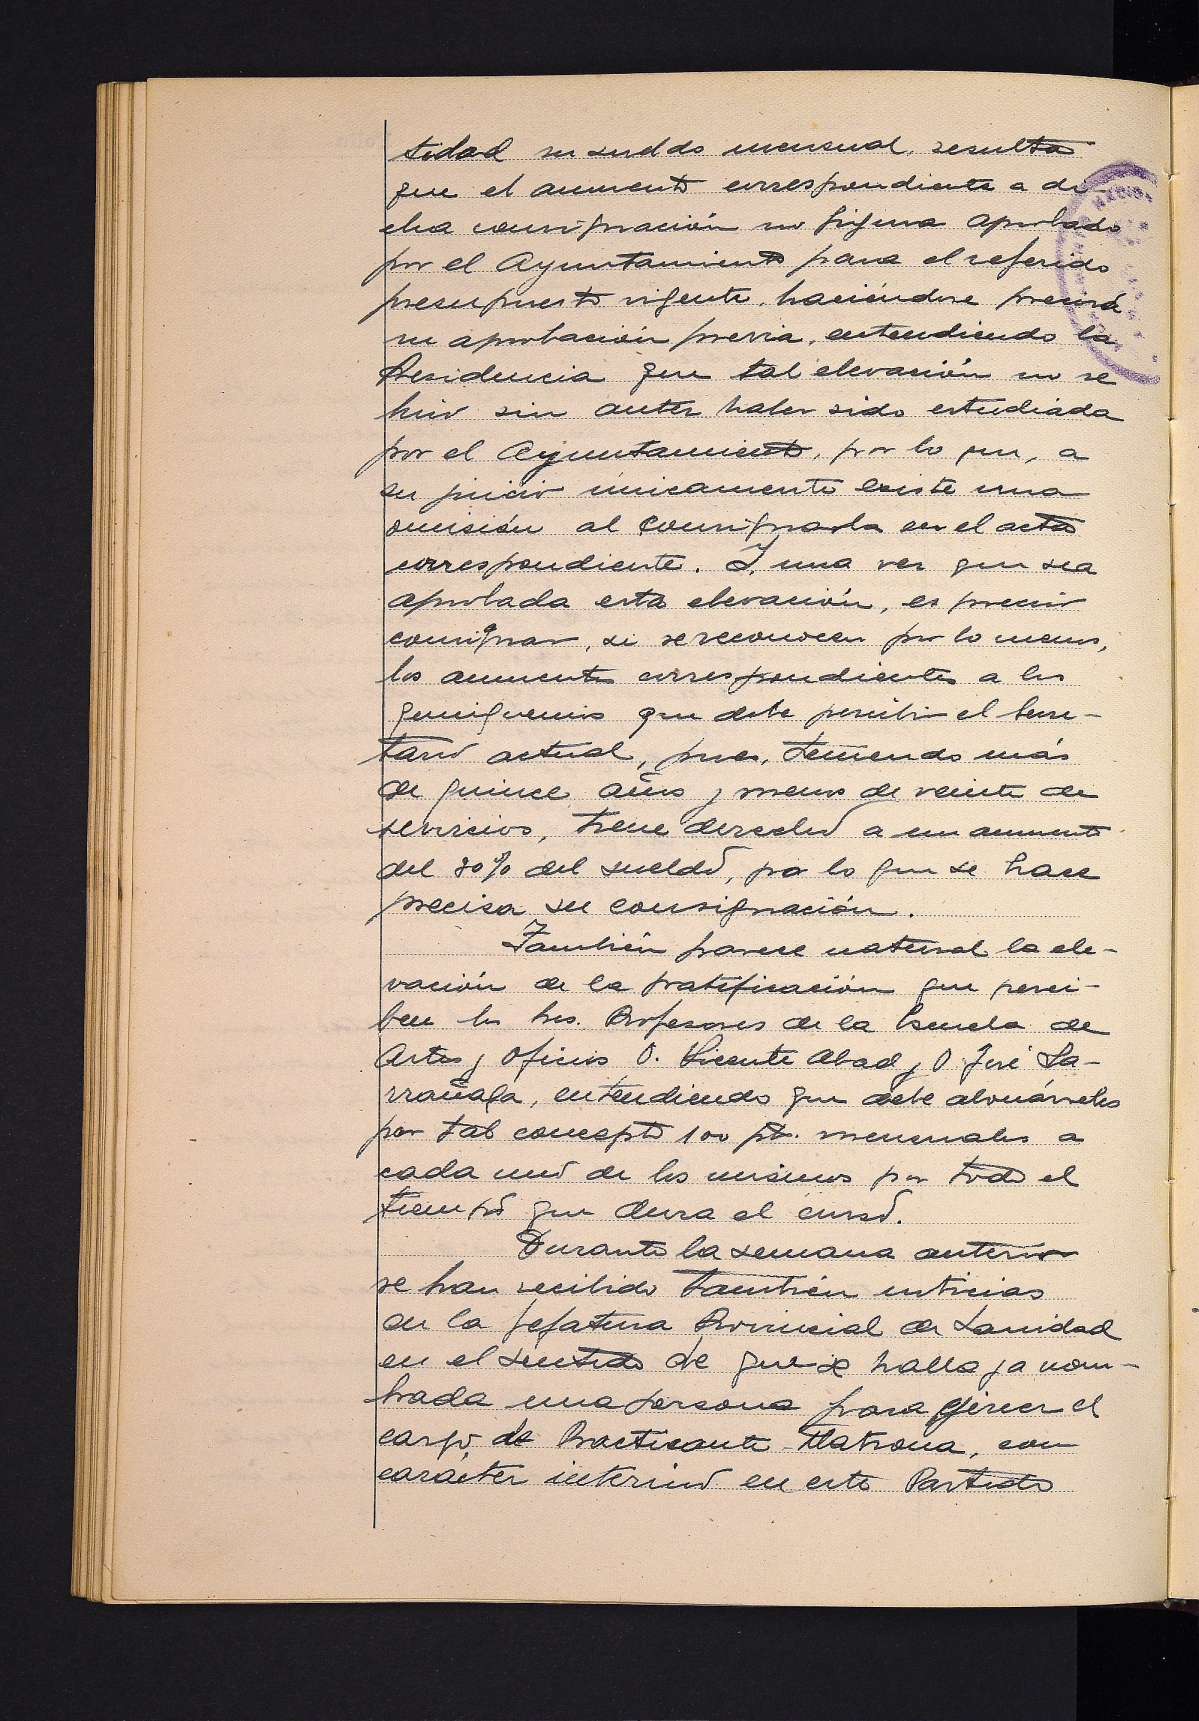 tidad su sueldo mensual, resulta
que el aumento correspondiente a di-
cha consignación no figura aprobado
por el Ayuntamiento para el referido
presupuesto vigente, haciéndose precisa
su aprobación previa, entendiendo la
Presidencia que tal elevación no se
hizo sin antes haber sido estudiada
por el Ayuntamiento, por lo que, a
su juicio únicamente existe una
omisión al consignarla en el acta
correspondiente. Y, una vez que sea
aprobada esta elevación, es preciso
consignar, se se reconocen por lo menos,
los aumentos correspondientes a los
quinquenios que debe percibir el Secre-
tario actual, pues, teniendo más
de quince años y menos de veinte de
servicios, tiene derecho a un aumento
del 30% del sueldo, por lo que se hace
precisa su consignación.
También parece natural la ele-
vación de la gratificación que perci-
ben los Sres. Profesores de la Escuela de
Artes y Oficios D. Vicente Abad y D José La-
rrañaga, entendiendo que debe abonárseles
por tal concepto 100 pts. mensuales a
cada uno de los mismos por todo el
tiempo que dura el curso.
Durante la semana anterior
se han recibido también noticias
de la Jefatura Provincial de Sanidad
en el sentido de que se halla ya nom-
brada una persona para ejercer el
cargo de Practicante-Matrona, con
carácter interino en este Partido